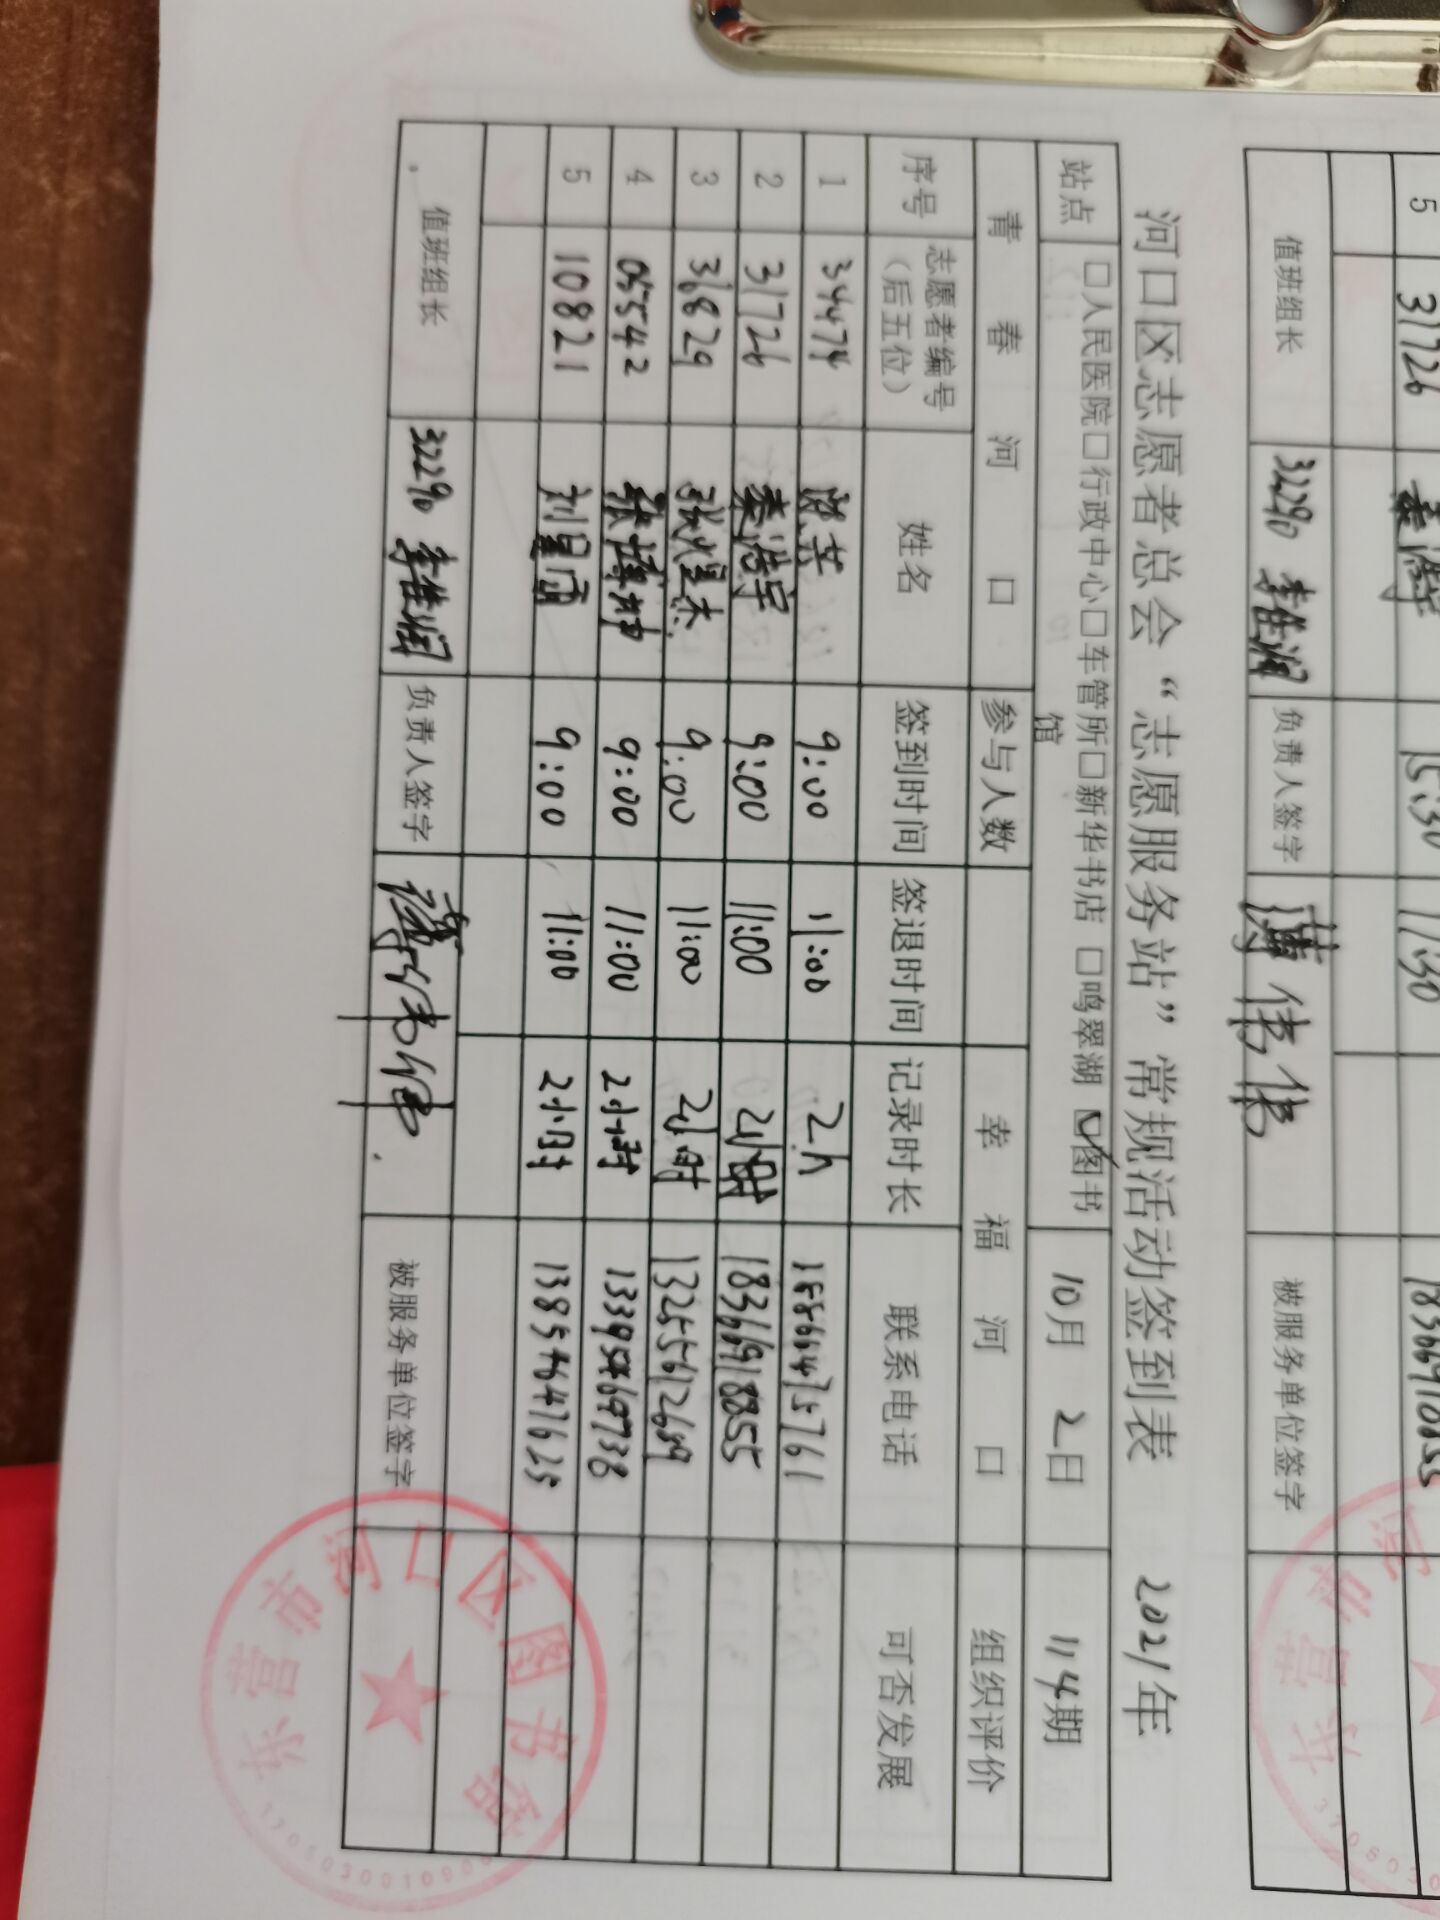 5 31726 15:30 17:30
值班组长 32290 李佳润 负责人签字 被服务单位签字
河口区志愿者总会“志愿服务站”常规活动签到表 2021年
站点 □人民医院□行政中心□车管所□新华书店 □鸣翠湖 ☑图书馆 10月2日 114期
青春河口 参与人数 幸福河口 组织评价
序号 志愿者编号（后五位） 姓名 签到时间 签退时间 记录时长 联系电话 可否发展
1 34474 9:00 11:00 2h
2 31726 秦浩宇 9:00 11:00 2小时 18366918855
3 36829 张煜杰 9:00 11:00 2小时 13255612689
4 05542 张博翀 9:00 11:00 2小时 13395469738
5 10821 刘星雨 9:00 11:00 2小时 13854647625
值班组长 32290 李佳润 负责人签字 被服务单位签字
东营市河口区图书馆
东营市河